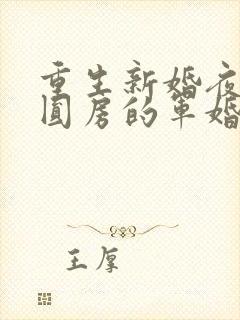 重生新婚夜
圆房的军婚
王厚